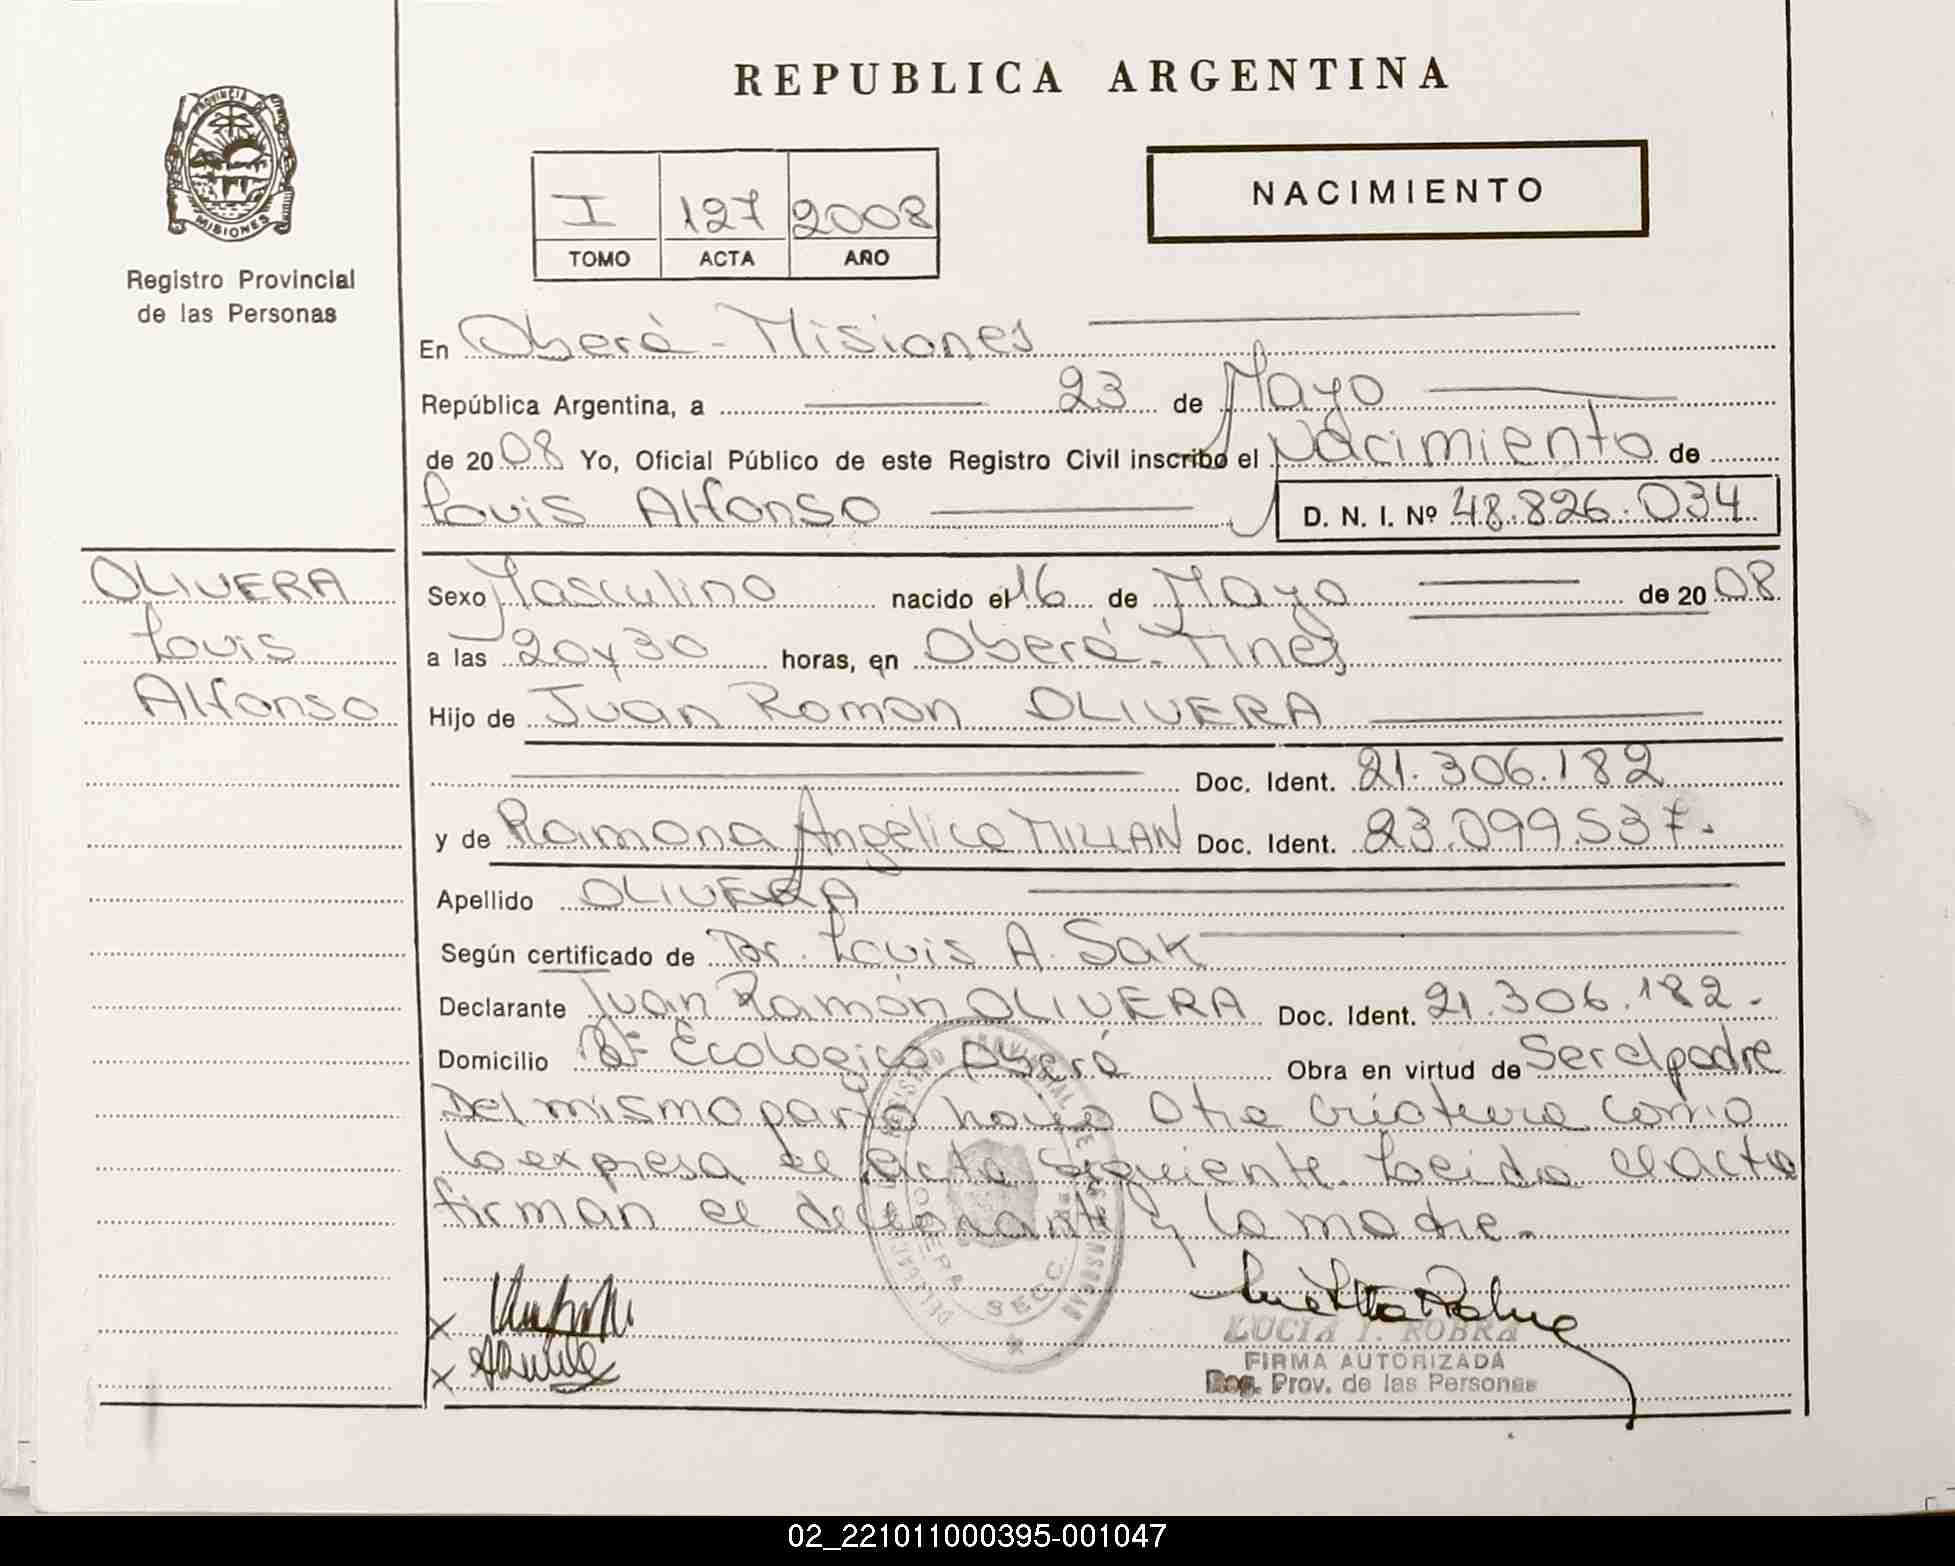 REPUBLICA ARGENTINA
PROVINCIA
MISIONES
Registro Provincial
de las Personas
I 127 2008
TOMO ACTA AÑO
NACIMIENTO
En Oberá - Misiones
República Argentina, a 23 de Mayo
de 2008 Yo, Oficial Público de este Registro Civil inscribo el Nacimiento de
Louis Alfonso D. N. I. Nº 48.826.034
OLIVERA
Louis
Alfonso
Sexo Masculino nacido el 16 de Mayo de 2008
a las 20 y 30 horas, en Oberá - Mnes
Hijo de Juan Ramon OLIVERA
Doc. Ident. 21.306.182
y de Ramona Angélica MILLAN Doc. Ident. 23.099.537.
Apellido OLIVERA
Según certificado de Dr. Louis A. Sak
Declarante Juan Ramón OLIVERA Doc. Ident. 21.306.182.
Domicilio Bº Ecologico Oberá Obra en virtud de Ser el padre
Del mismo parto nació Otra criatura como
lo expresa el acta siguiente. Leida el acta
firman el declarante y la madre.
REGISTRO PROVINCIAL DE LAS PERSONAS
OBERA
SECC.
X
X
LUCIA T. ROBRA
FIRMA AUTORIZADA
Reg. Prov. de las Personas
02_221011000395-001047